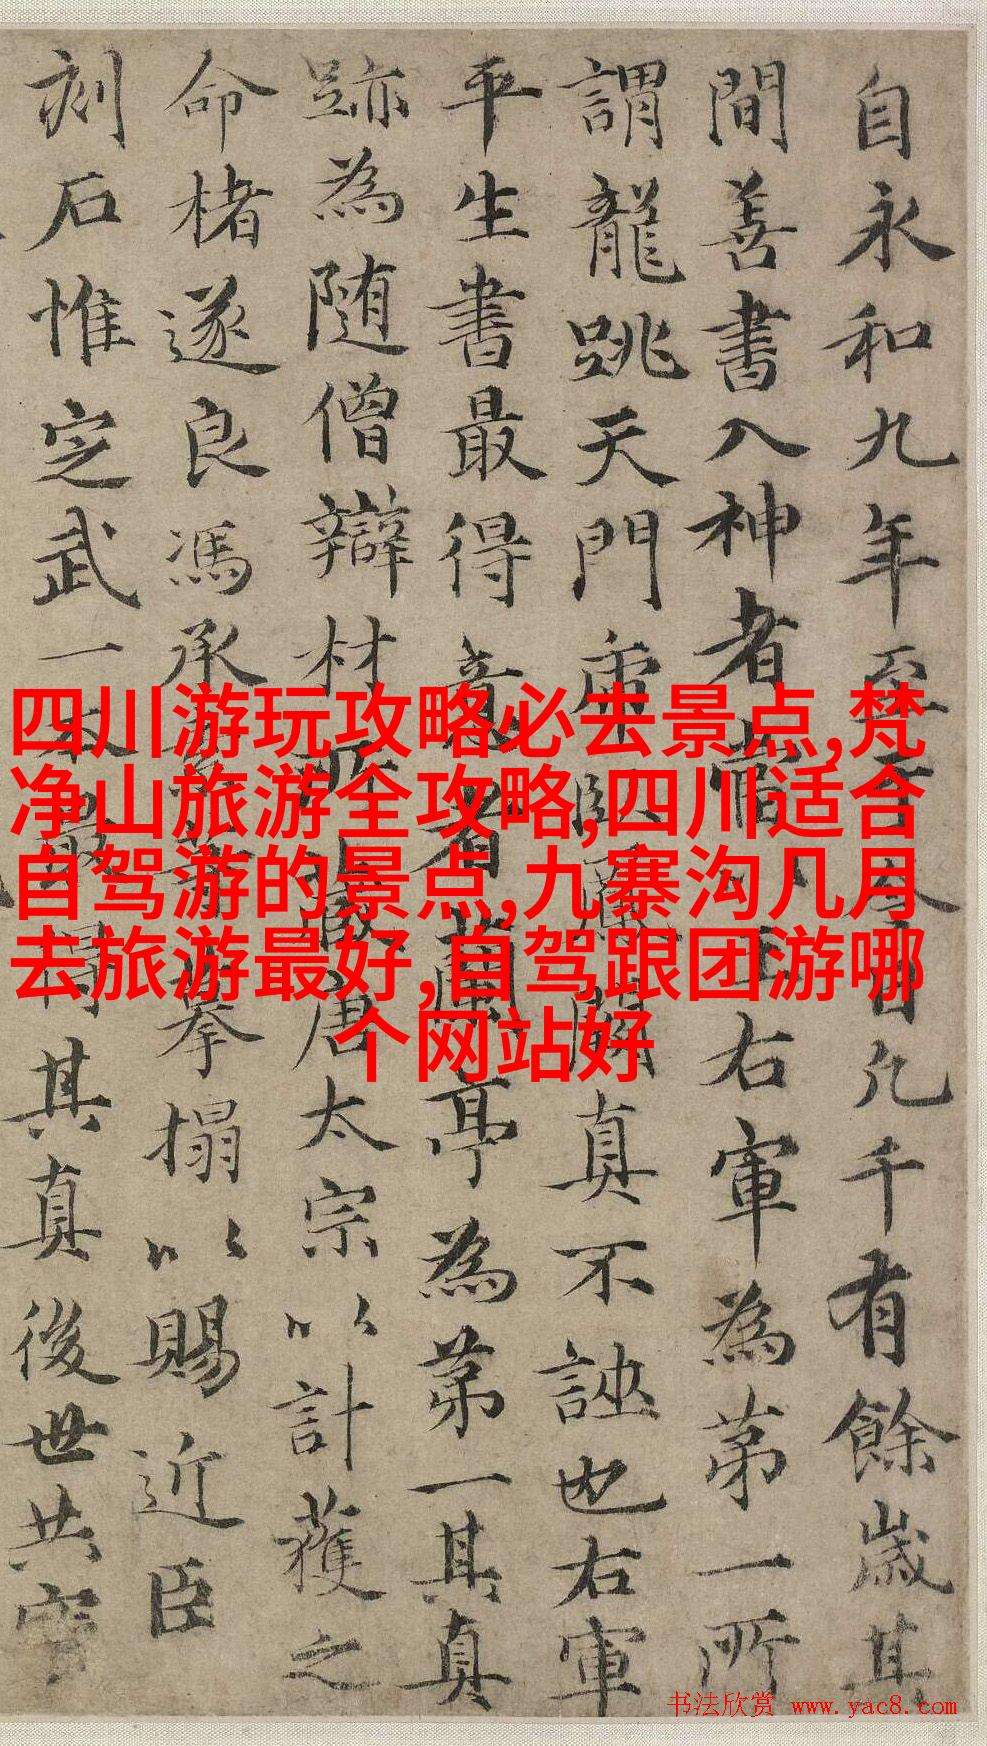 自永和九年至凡千有餘歲其
間善書入神者當以王右軍為第一所
謂龍跳天門虎臥鳳閣真不誣也右軍
平生書最得意者蘭亭為第一其真
跡為随僧辯材所藏唐太宗以計獲之
命楮遂良馮承搨以賜近臣
刻石惟定武一本最得其真後世共寶
四川游玩攻略必去景点,梵
净山旅游全攻略,四川适合
自驾游的景点,九寨沟几月
去旅游最好,自驾跟团游哪
个网站好
书法欣赏 www.yac8.com